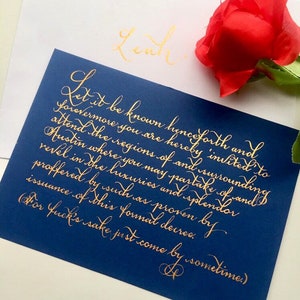 Leah
Let it be known henceforth and
forevermore you are hereby invited to
attend the regions of and surrounding
Austin where you may partake of and
revel in the luxuries and splendor
proffered by such as proven by
issuance of this formal decree.
(For fuck's sake just come by sometime.)